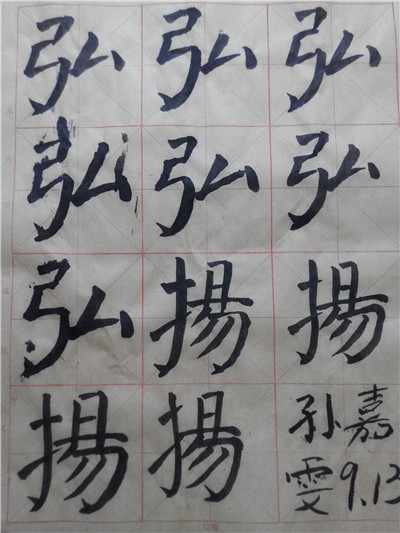 弘弘弘
弘弘弘
弘揚揚
揚揚
孙嘉
雯9.13